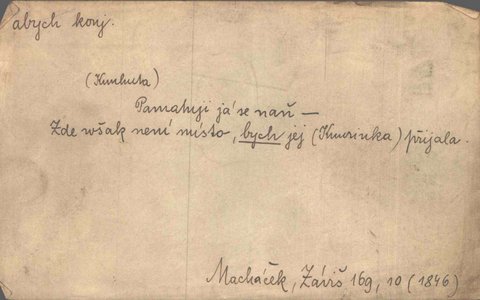 abych konj.
(Kunhuta)
Pamatuji já se naň —
Zde wšak není místo, bych jej (Kunrinka) přijala.
Macháček, Záviš, 169, 10 (1846)